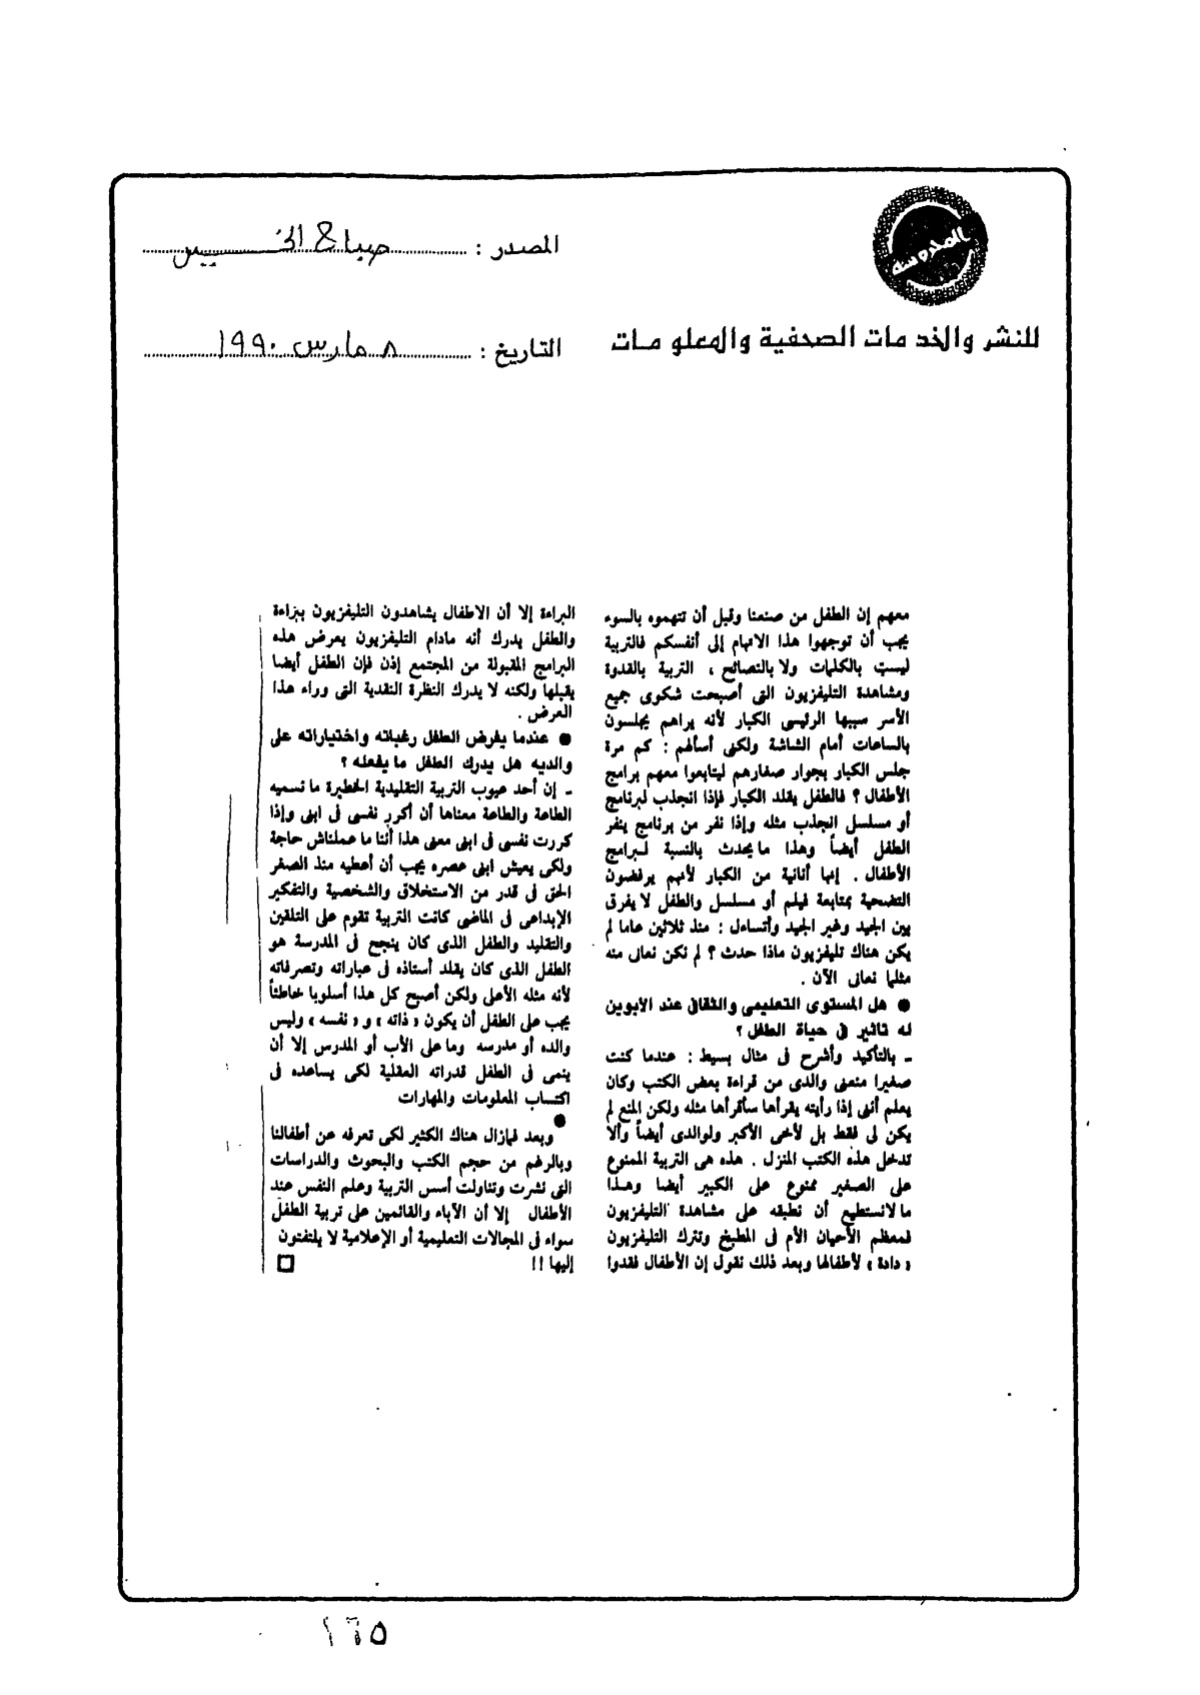 المصدر : صباح الخير
التاريخ : ٨ مارس ١٩٩٠
للنشر والخدمات الصحفية والمعلومات
معهم إن الطفل من صنعنا وقبل أن تتهموه بالسوء
يجب أن توجهوا هذا الاتهام إلى أنفسكم فالتربية
ليست بالكلمات ولا بالنصائح ، التربية بالقدوة
ومشاهدة التليفزيون التى أصبحت شكوى جميع
الأسر سببها الرئيسى الكبار لأنه يراهم يجلسون
بالساعات أمام الشاشة ولكنى أسألهم : كم مرة
جلس الكبار بجوار صغارهم ليتابعوا معهم برامج
الأطفال ؟ فالطفل يقلد الكبار فإذا انجذب لبرنامج
أو مسلسل انجذب مثله وإذا نفر من برنامج ينفر
الطفل أيضاً وهذا ما يحدث بالنسبة لبرامج
الأطفال . إنها أنانية من الكبار لأنهم يرفضون
التضحية بمتابعة فيلم أو مسلسل والطفل لا يفرق
بين الجيد وغير الجيد وأتساءل : منذ ثلاثين عاما لم
يكن هناك تليفزيون ماذا حدث ؟ لم نكن نعانى منه
مثلما نعانى الآن .
● هل المستوى التعليمى والثقافى عند الأبوين
له تأثير فى حياة الطفل ؟
ـ بالتأكيد وأشرح فى مثال بسيط : عندما كنت
صغيرا منعنى والدى من قراءة بعض الكتب وكان
يعلم أننى إذا رأيته يقرأها سأقرأها مثله ولكن المنع لم
يكن لى فقط بل لأخى الأكبر ولوالدى أيضاً وألا
تدخل هذه الكتب المنزل . هذه هى التربية الممنوع
على الصغير ممنوع على الكبير أيضا وهذا
ما لا نستطيع أن نطبقه على مشاهدة التليفزيون
فمعظم الأحيان الأم فى المطبخ وتترك التليفزيون
« دادة » لأطفالها وبعد ذلك نقول إن الأطفال فقدوا
البراءة إلا أن الأطفال يشاهدون التليفزيون ببراءة
والطفل يدرك أنه مادام التليفزيون يعرض هذه
البرامج المقبولة من المجتمع إذن فإن الطفل أيضا
يقبلها ولكنه لا يدرك النظرة النقدية التى وراء هذا
العرض .
● عندما يفرض الطفل رغباته واختياراته على
والديه هل يدرك الطفل ما يفعله ؟
ـ إن أحد عيوب التربية التقليدية الخطيرة ما نسميه
الطاعة والطاعة معناها أن أكرر نفسى فى ابنى وإذا
كررت نفسى فى ابنى معنى هذا أننا ما عملناش حاجة
ولكى يعيش ابنى عصره يجب أن أعطيه منذ الصغر
الحق فى قدر من الاستخلاق والشخصية والتفكير
الإبداعى فى الماضى كانت التربية تقوم على التلقين
والتقليد والطفل الذى كان ينجح فى المدرسة هو
الطفل الذى كان يقلد أستاذه فى عباراته وتصرفاته
لأنه مثله الأعلى ولكن أصبح كل هذا أسلوبا خاطئاً
يجب على الطفل أن يكون « ذاته » و « نفسه » وليس
والده أو مدرسه وما على الأب أو المدرس إلا أن
ينمى فى الطفل قدراته العقلية لكى يساعده فى
اكتساب المعلومات والمهارات
●
وبعد فمازال هناك الكثير لكى نعرفه عن أطفالنا
وبالرغم من حجم الكتب والبحوث والدراسات
التى نشرت وتناولت أسس التربية وعلم النفس عند
الأطفال إلا أن الآباء والقائمين على تربية الطفل
سواء فى المجالات التعليمية أو الإعلامية لا يلتفتون
إليها !!
١٦٥